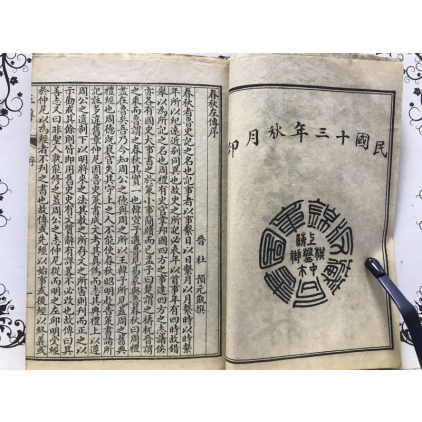 民國十三年秋月印
春秋左傳序
晉杜預元凱撰
春秋者魯史記之名也記事者以事繫日以日繫月以月繫時以時繫
年所以紀遠近別同異也故史之所記必表年以首事年有四時故錯
舉以為所記之名也周禮有史官掌邦國四方之事達四方之志諸侯
亦各有國史大事書之於策小事簡牘而已孟子曰楚謂之檮杌晉謂
之乘而魯謂之春秋其實一也韓宣子適魯見易象與魯春秋曰周禮
盡在魯矣吾乃今知周公之德與周之所以王韓子所見蓋周之舊典
禮經也周德既衰官失其守上之人不能使春秋昭明赴告策書諸所
記註多違舊章仲尼因魯史策書成文考其真偽而志其典禮上以遵
周公之遺制下以明將來之法其教之所存文之所害則刊而正之以
示勸戒其餘則皆即用舊史史有文質辭有詳略不必改也故傳曰其
善志又曰非聖人孰能修之蓋周公之志仲尼從而明之左丘明受經
於仲尼以為經者不刊之書也故傳或先經以始事或後經以終義或